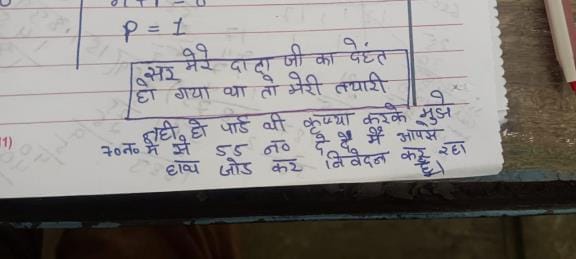 P = 1
सर मेरे दादा जी का देहंत
हो गया था तो मेरी तयारी
नही हो पाई थी कृप्या करके मुझे
70 न० में से 55 न० दे दे में आपसे
हाथ जोड कर विवेदन कर रहा
है।